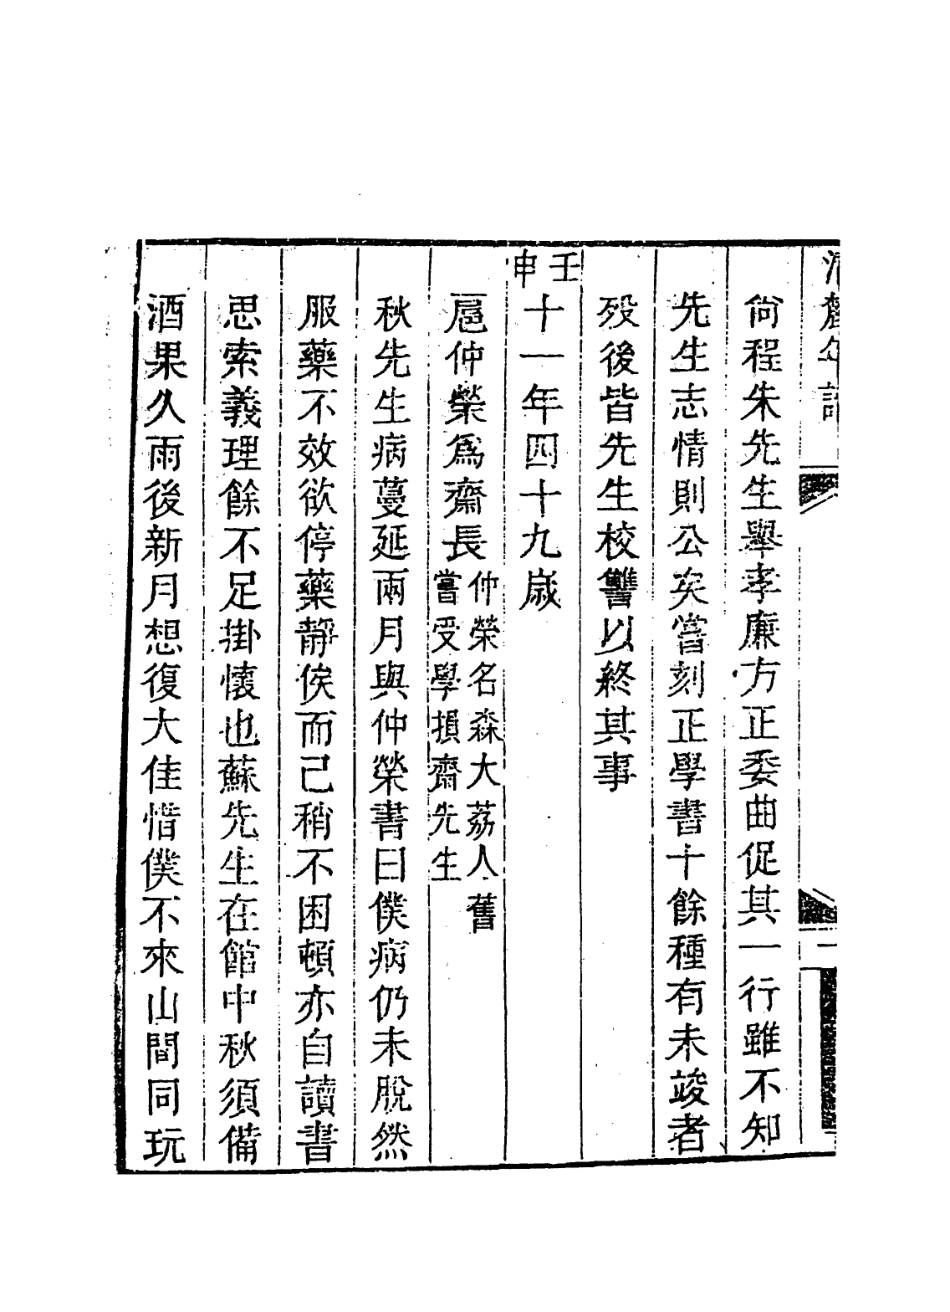 清麓年譜
一
尙程朱先生舉孝廉方正委曲促其一行雖不知
先生志情則公矣嘗刻正學書十餘種有未竣者
歿後皆先生校讐以終其事
壬申
十一年四十九歲
扈仲榮爲齋長仲榮名森大荔人舊
嘗受學損齋先生
秋先生病蔓延兩月與仲榮書曰僕病仍未脫然
服藥不效欲停藥靜俟而已稍不困頓亦自讀書
思索義理餘不足掛懷也蘇先生在館中秋須備
酒果久雨後新月想復大佳惜僕不來山間同玩